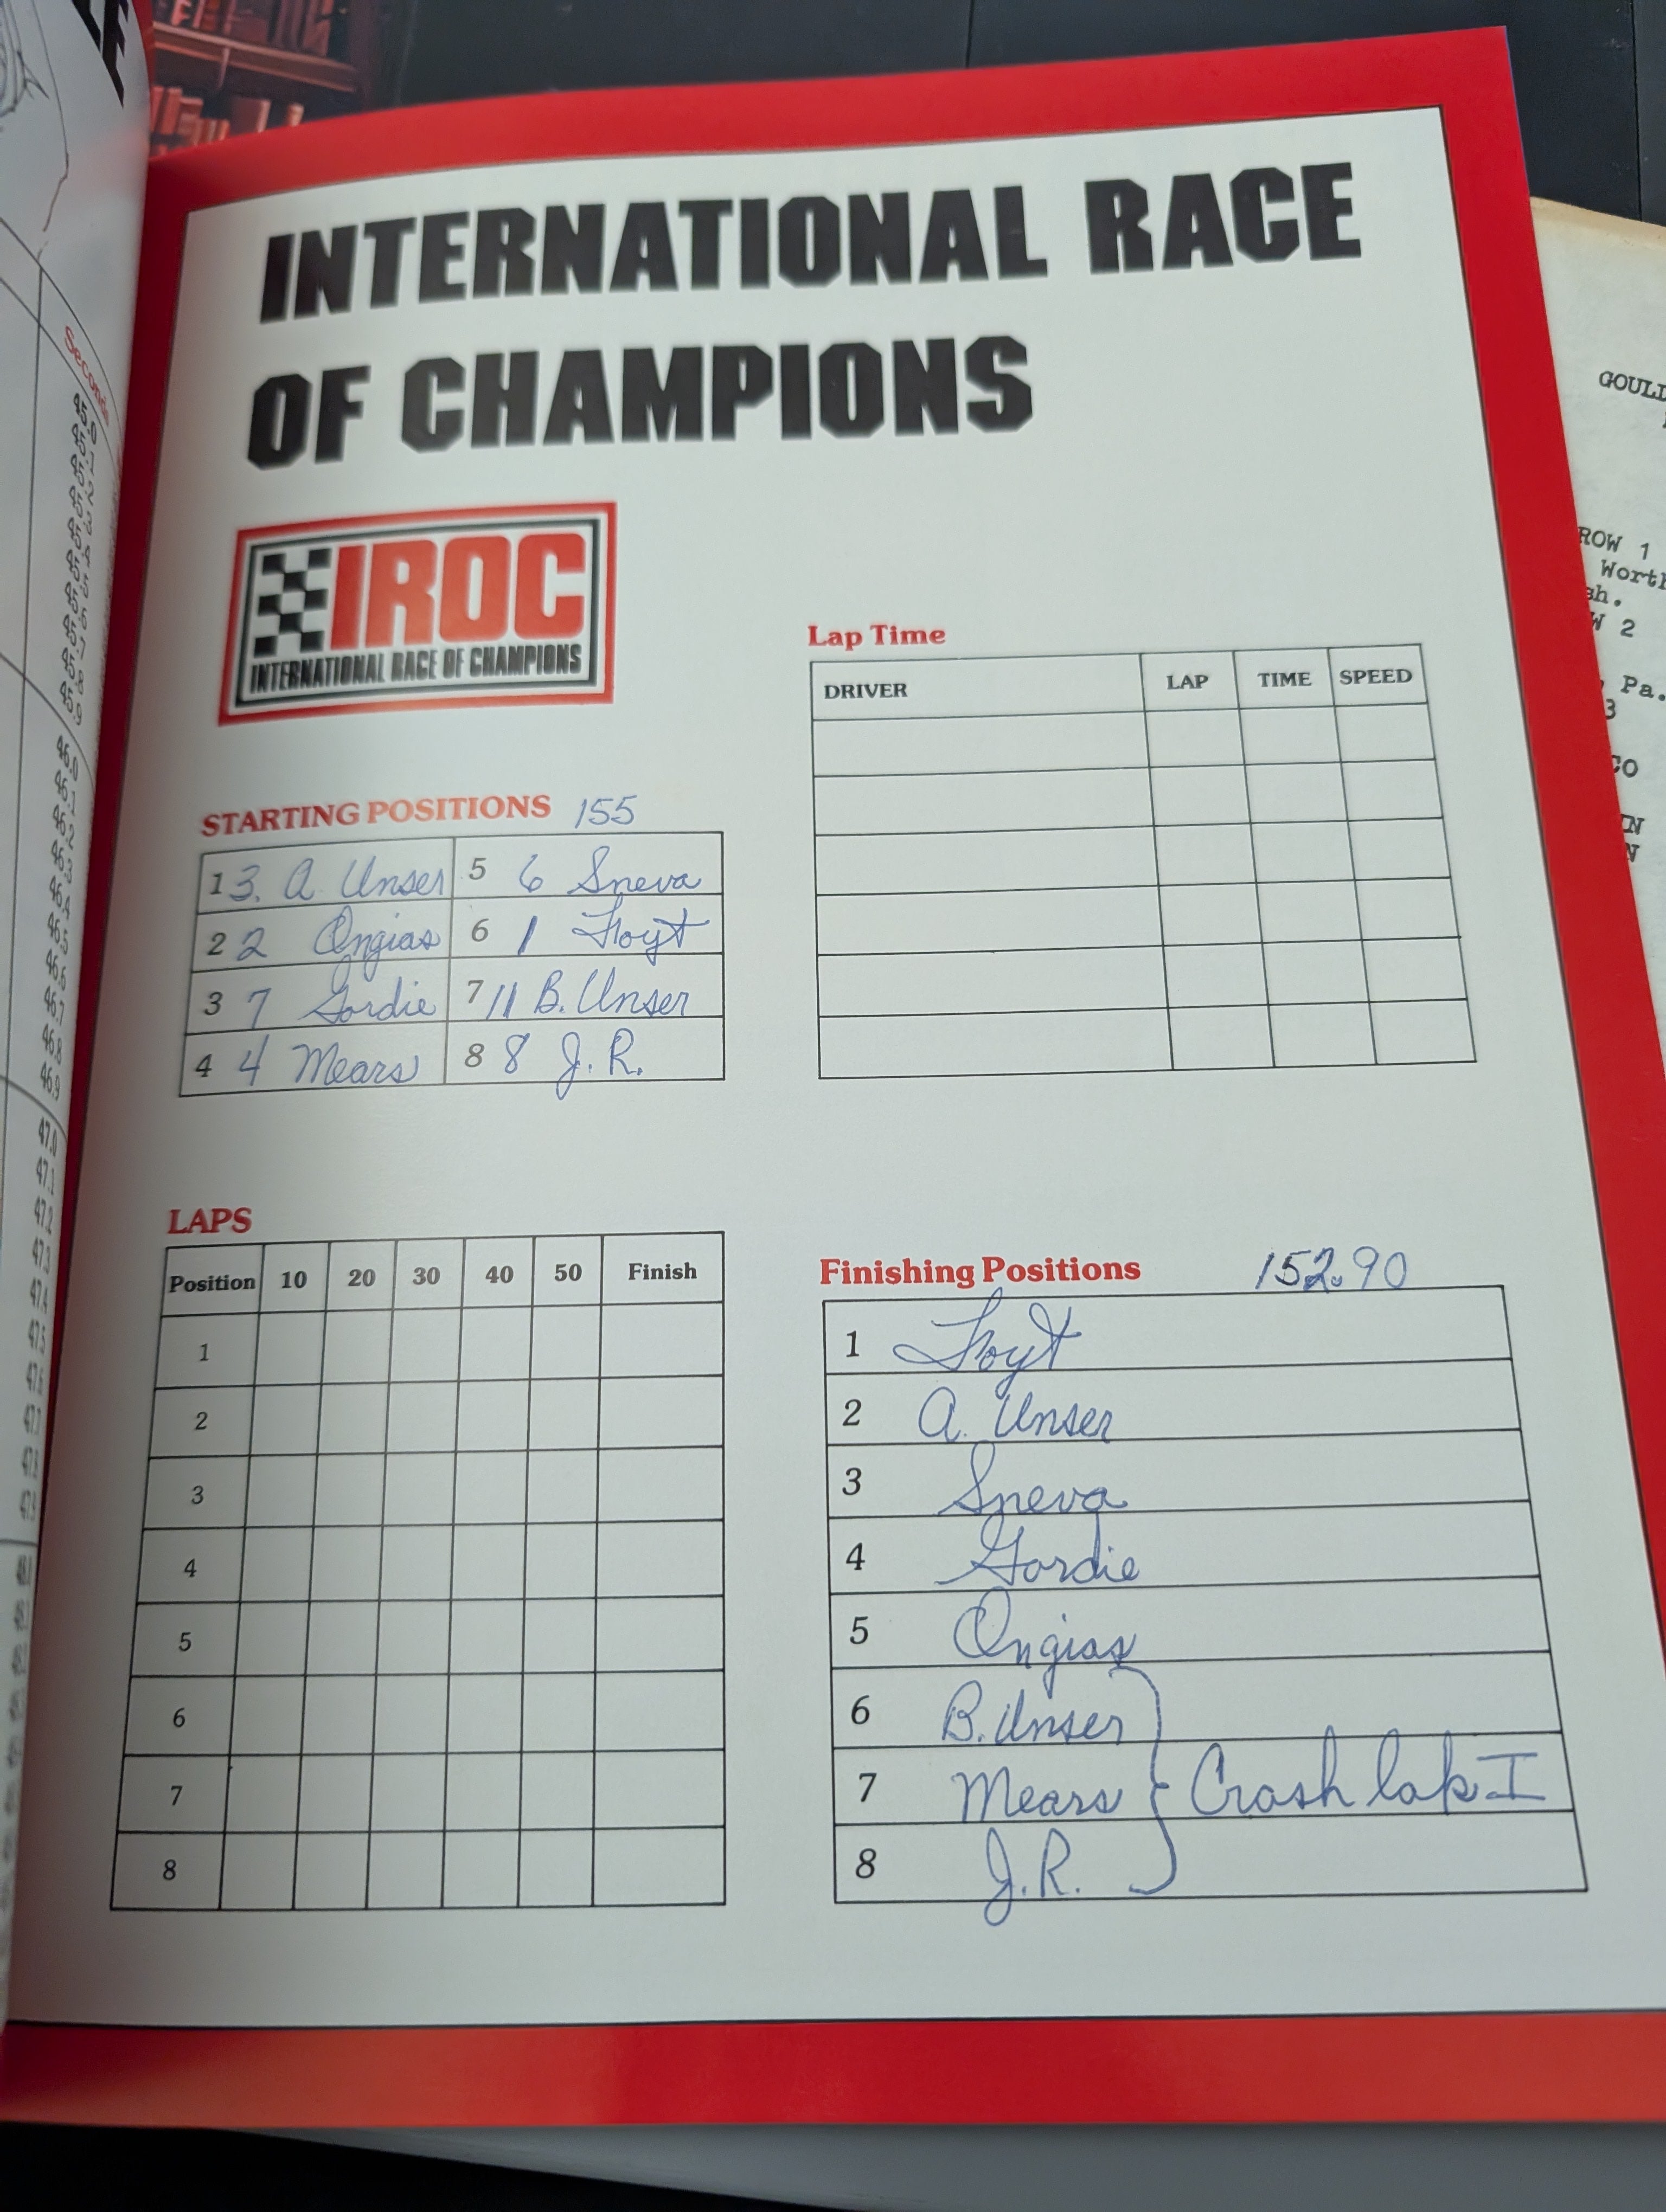 INTERNATIONAL RACE
OF CHAMPIONS
IROC
INTERNATIONAL RACE OF CHAMPIONS
STARTING POSITIONS 155
1 3. A Unser 5 6 Sneva
2 2 Ongias 6 1 Foyt
3 7 Gordie 7 11 B. Unser
4 4 Mears 8 8 J.R.
Lap Time
DRIVER LAP TIME SPEED
LAPS
Position 10 20 30 40 50 Finish
1
2
3
4
5
6
7
8
Finishing Positions 152.90
1 Foyt
2 A. Unser
3 Sneva
4 Gordie
5 Ongias
6 B. Unser
7 Mears } Crash lap I
8 J.R.
Seconds
46.0
46.1
46.2
46.3
46.4
46.5
46.6
46.7
46.8
46.9
47.0
47.1
47.2
47.3
47.4
47.5
47.6
47.7
47.8
47.9
ROW 1
2
Pa.
3